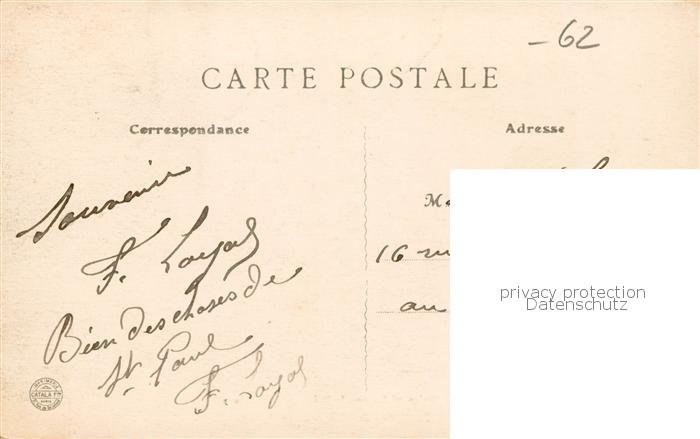 -62
CARTE POSTALE
Correspondance
Adresse
Souvenir
F. Loyal
Bien des choses de
St. Paul
F. Loyal
M
16 ru
au
privacy protection
Datenschutz
CATALA